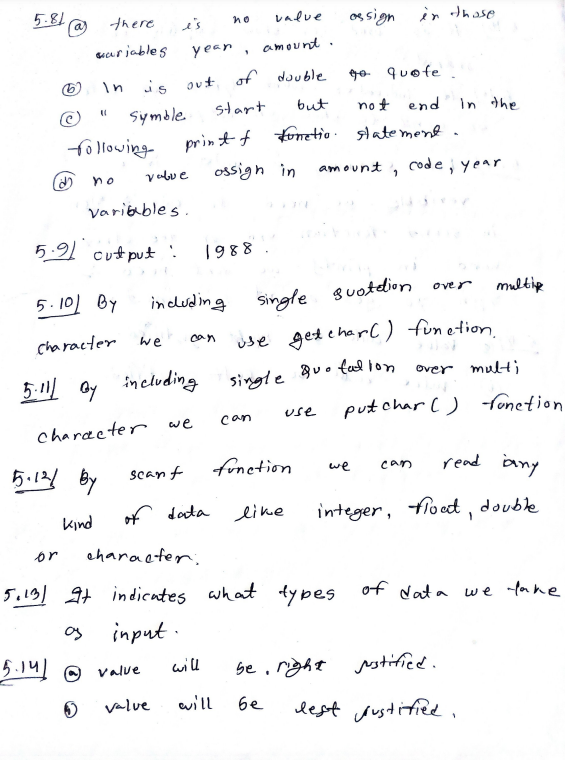 5.8/ (a) there is no value assign in those
variables year, amount.
(b) \n is out of double quote.
(c) " symble start but not end in the
following printf statement.
(d) no value assign in amount, code, year
variables.
5.9/ output : 1988.
5.10/ By including single quotation over multiple
character we can use getchar() function.
5.11/ By including single quotation over multi
character we can use putchar() function
5.12/ By scanf function we can read any
kind of data like integer, float, double
or character.
5.13/ It indicates what types of data we take
as input.
5.14/ (a) value will be right justified.
(b) value will be left justified.